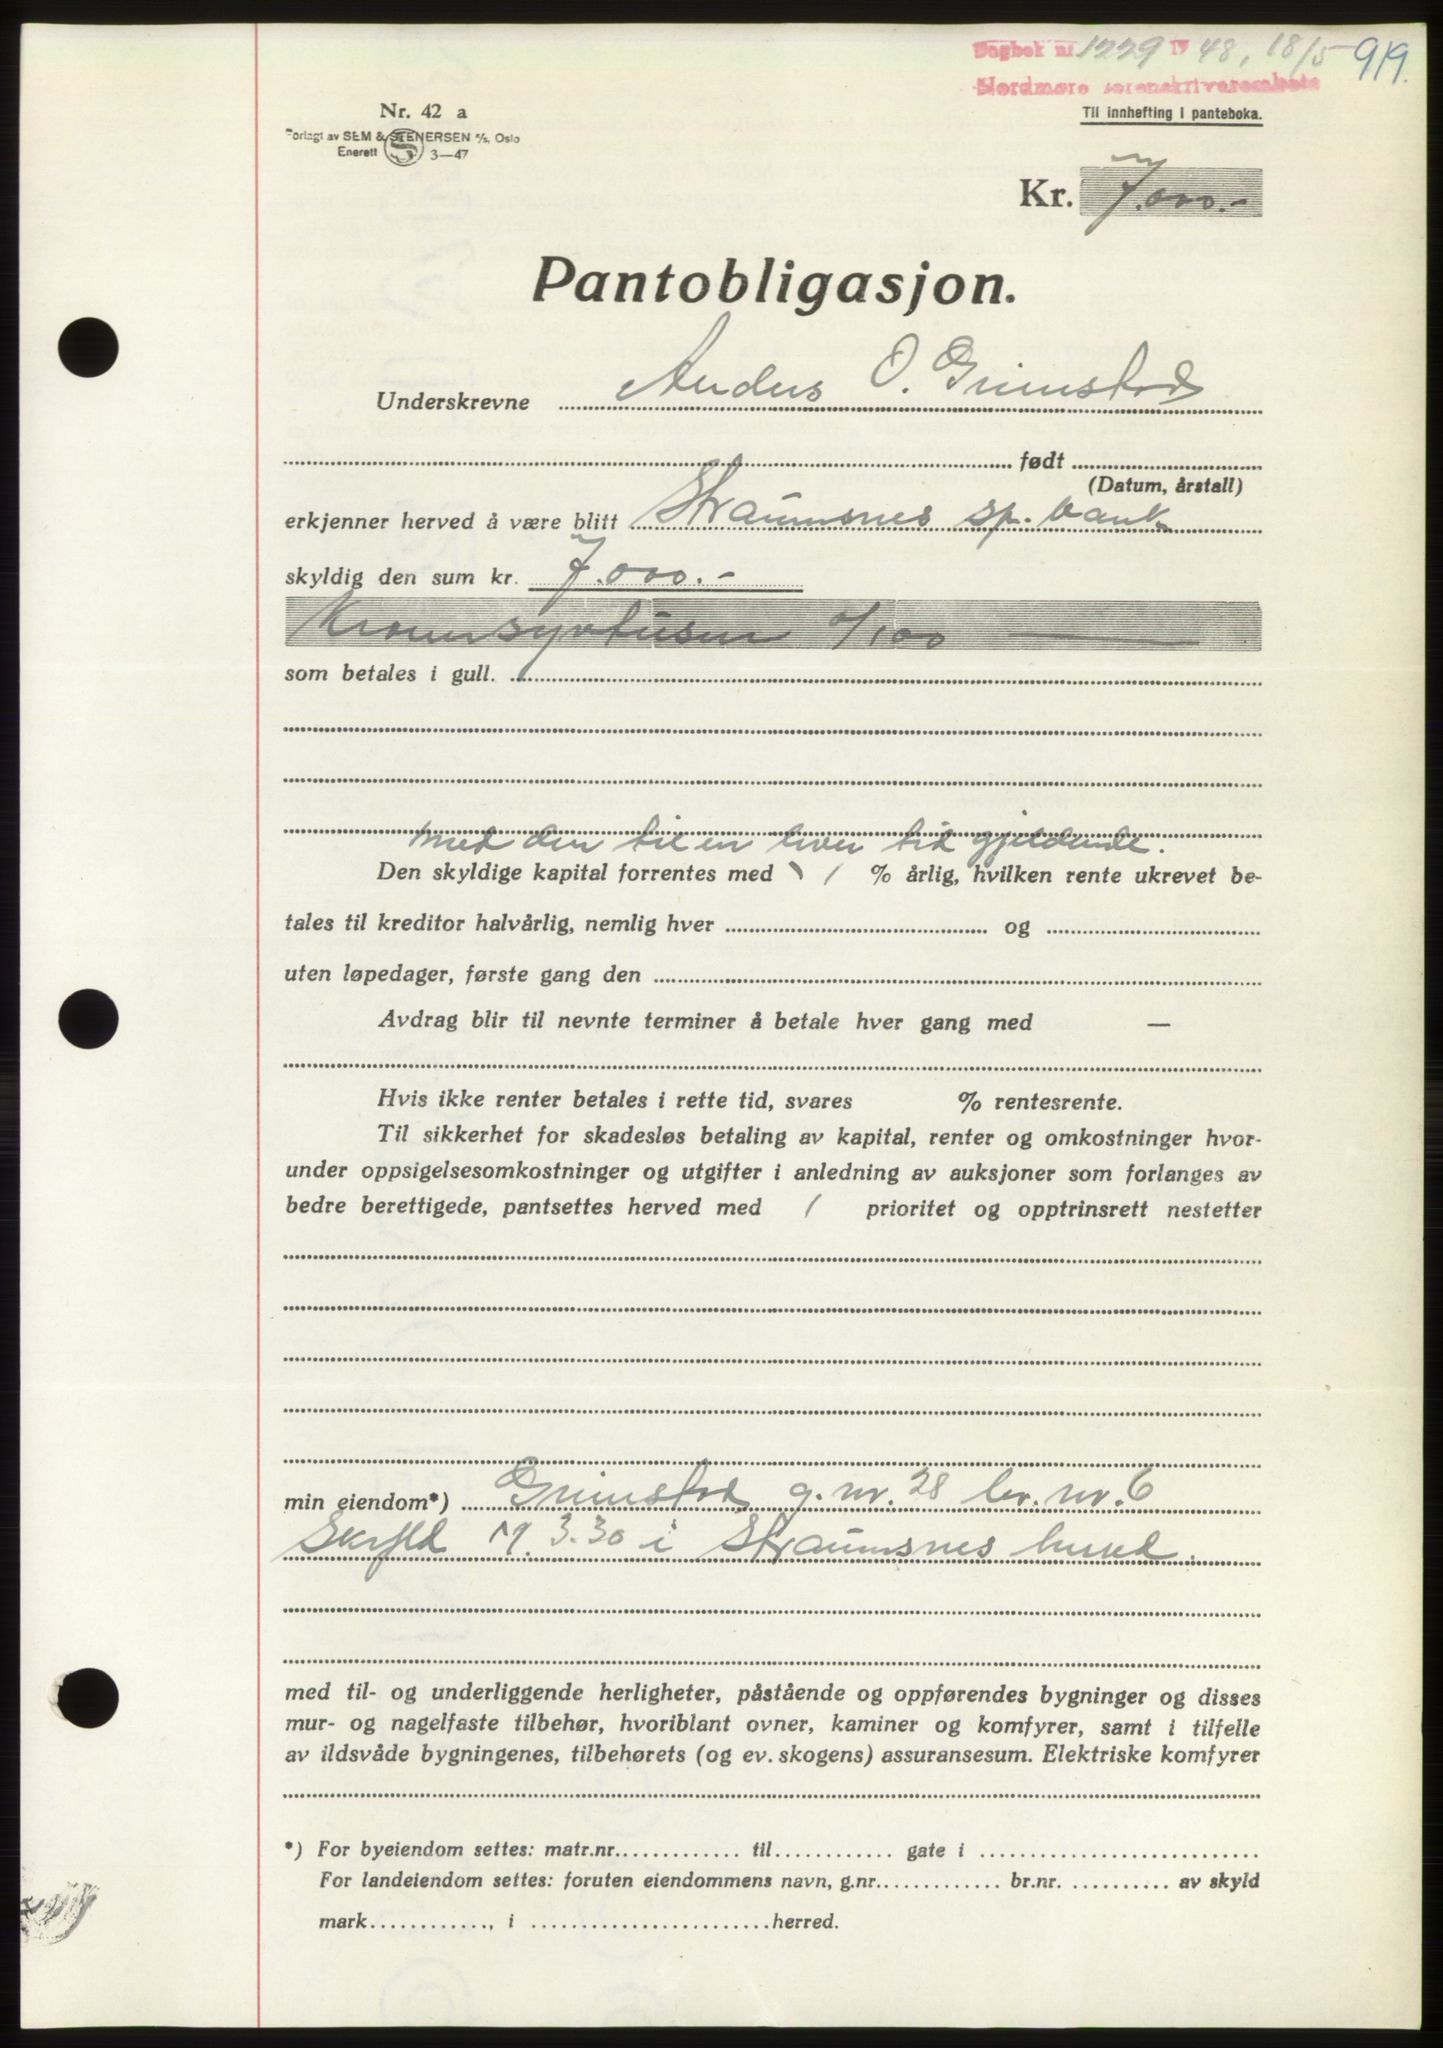 Dagbok nr. 1229 19 48, 18/5 919.
Nordmøre sorenskriverembete
Nr. 42 a
Til innhefting i panteboka.
Forlagt av SEM & STENERSEN A/S, Oslo
Enerett S 3—47
Kr. 7.000.-
Pantobligasjon.
Underskrevne Anders O. Grimstad
født
(Datum, årstall)
erkjenner herved å være blitt Straumsnes sp. bank
skyldig den sum kr. 7.000.-
Kroner syvtusen 0/100
som betales i gull.
med den til en hver tid gjeldende.
Den skyldige kapital forrentes med % årlig, hvilken rente ukrevet be-
tales til kreditor halvårlig, nemlig hver og
uten løpedager, første gang den
Avdrag blir til nevnte terminer å betale hver gang med —
Hvis ikke renter betales i rette tid, svares % rentesrente.
Til sikkerhet for skadesløs betaling av kapital, renter og omkostninger hvor-
under oppsigelsesomkostninger og utgifter i anledning av auksjoner som forlanges av
bedre berettigede, pantsettes herved med 1 prioritet og opptrinsrett nestetter
min eiendom*) Grimstad g. nr. 28 br. nr. 6
Skyld M. 3.30 i Straumsnes herred.
med til- og underliggende herligheter, påstående og oppførendes bygninger og disses
mur- og nagelfaste tilbehør, hvoriblant ovner, kaminer og komfyrer, samt i tilfelle
av ildsvåde bygningenes, tilbehørets (og ev. skogens) assuransesum. Elektriske komfyrer
*) For byeiendom settes: matr.nr. til gate i
For landeiendom settes: foruten eiendommens navn, g.nr. br.nr. av skyld
mark , i herred.